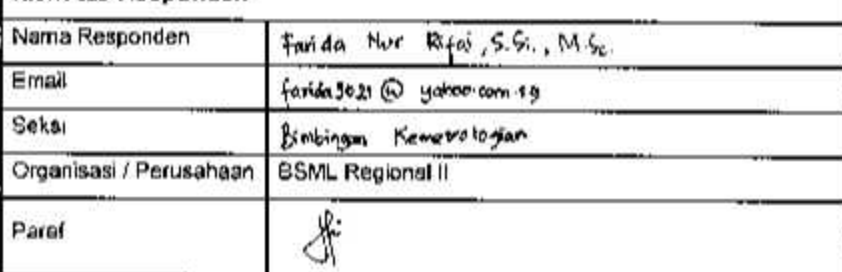 Nama Responden Farida Nur Rifai, S.Si., M.Sc.
Email @ yahoo.com.sg
Seksi Bimbingan Kemetrologian
Organisasi / Perusahaan BSML Regional II
Paraf